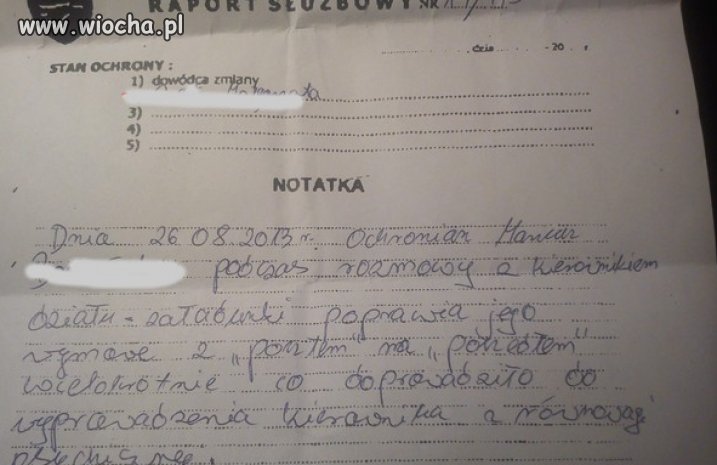 www.wiocha.pl
RAPORT SŁUŻBOWY NR
dnia 20 r.
STAN OCHRONY :
1) dowódca zmiany
3)
4)
5)
NOTATKA
Dnia 26.08.2013 r. Ochronian Mariusz
podczas rozmowy z kierownikiem
działu załadunki poprawia jego
wymowe z „poszłem" na „poszedłem"
wielokrotnie co doprowadziło do
wyprowadzenia kierownika z równowagi
psychicznej.